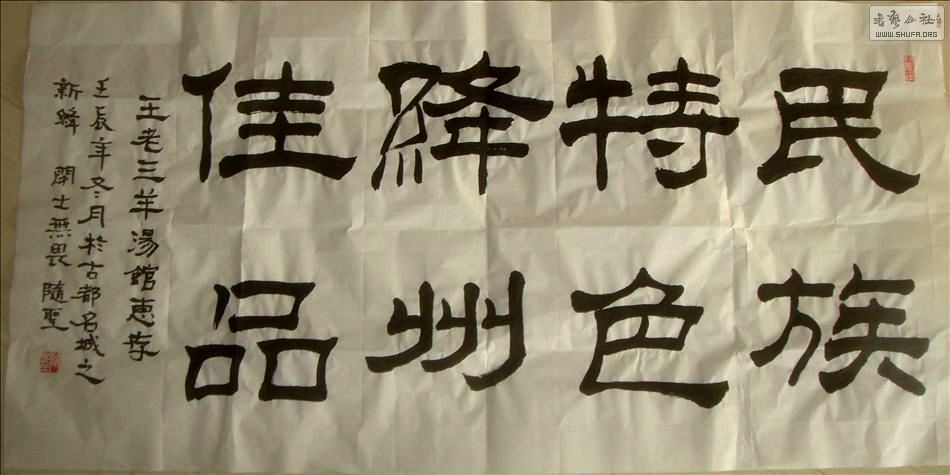 民族
特色
絳州
佳品
王老三羊湯館惠存
壬辰年冬月於古都名城之
新絳 閑士無畏 隨聖
WWW.SHUFA.ORG